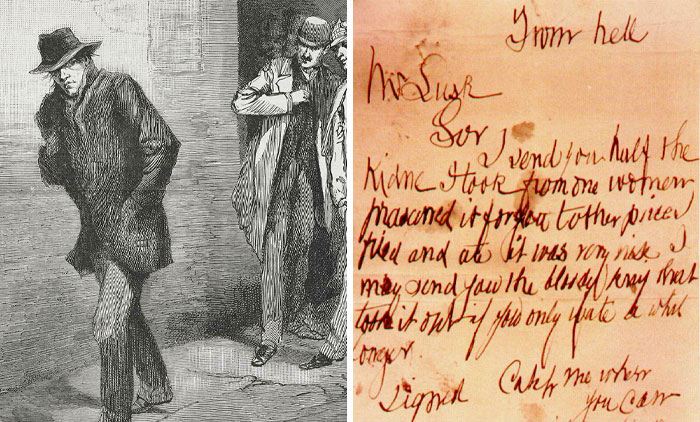 From hell
Mr Lusk
Sor
I send you half the
Kidne I took from one women
prasarved it for you tother piece I
fried and ate it was very nise I
may send you the bloody knif that
took it out if you only wate a whil
longer
Signed Catch me when
you can